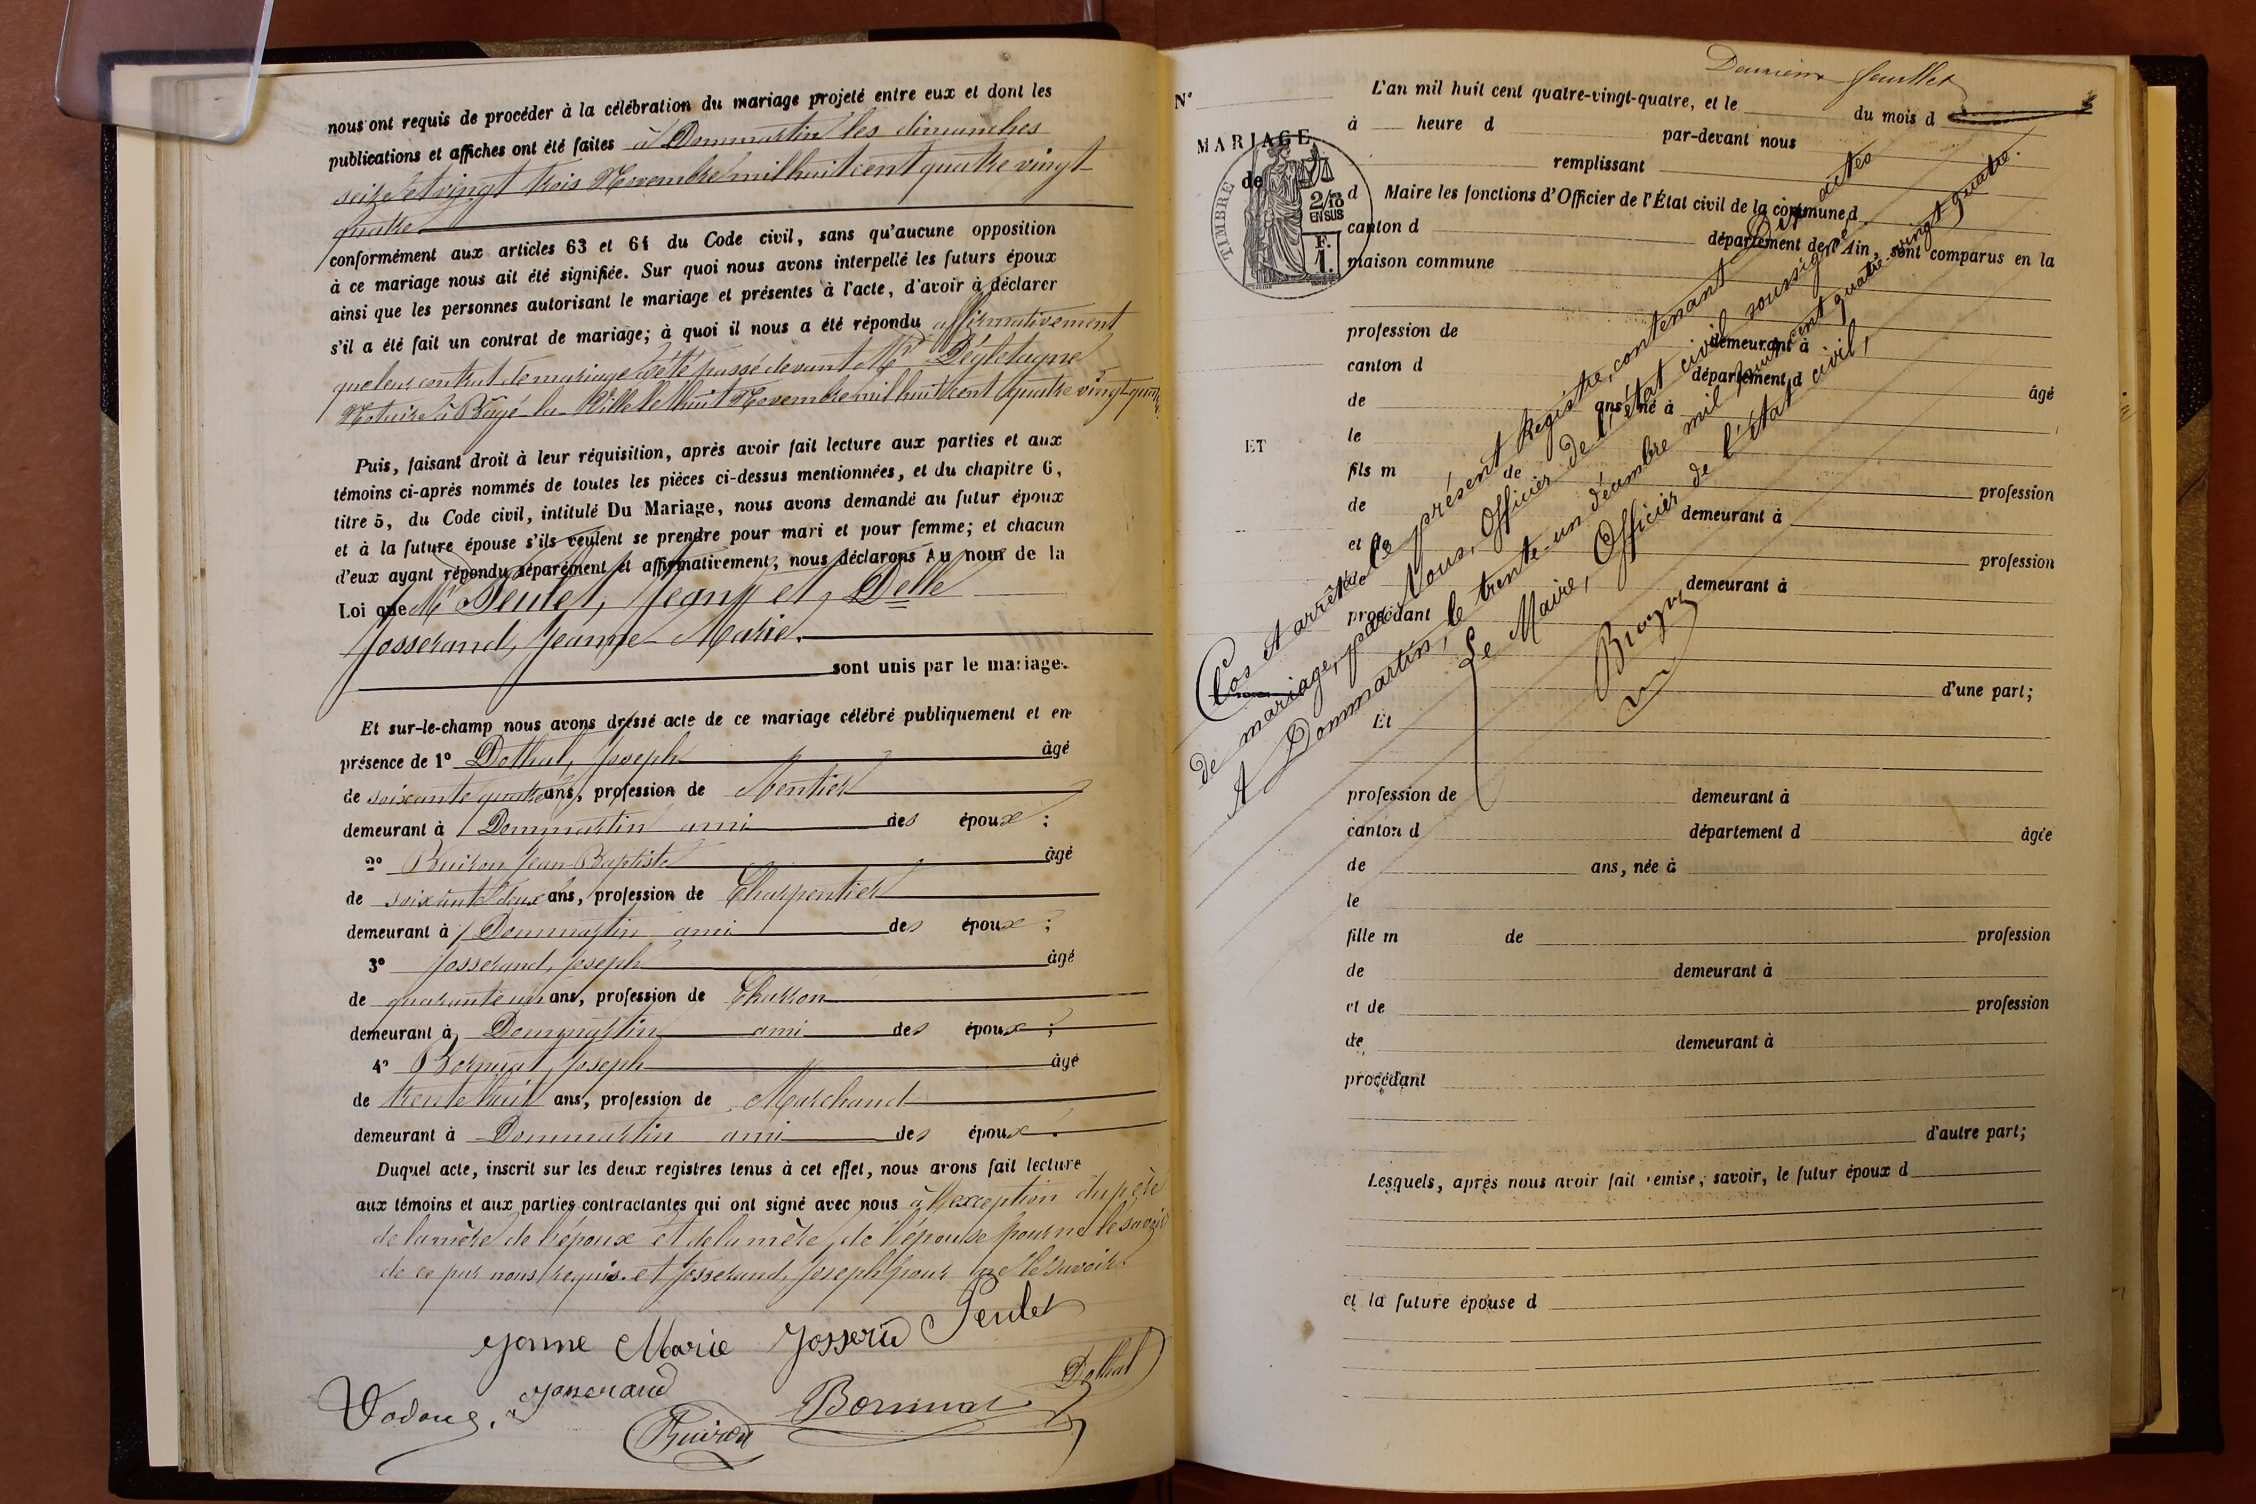 nous ont requis de procéder à la célébration du mariage projeté entre eux et dont les
publications et affiches ont été faites à Dommartin les dimanches
seize et vingt trois Novembre mil huit cent quatre vingt
quatre
conformément aux articles 63 et 64 du Code civil, sans qu'aucune opposition
à ce mariage nous ait été signifiée. Sur quoi nous avons interpellé les futurs époux
ainsi que les personnes autorisant le mariage et présentes à l'acte, d'avoir à déclarer
s'il a été fait un contrat de mariage; à quoi il nous a été répondu affirmativement
que leur contrat de mariage a été passé devant Me
Notaire à Bâgé-la-Ville le huit Novembre mil huit cent quatre vingt quatre
Puis, faisant droit à leur réquisition, après avoir fait lecture aux parties et aux
témoins ci-après nommés de toutes les pièces ci-dessus mentionnées, et du chapitre 6,
titre 5, du Code civil, intitulé Du Mariage, nous avons demandé au futur époux
et à la future épouse s'ils veulent se prendre pour mari et pour femme; et chacun
d'eux ayant répondu séparément et affirmativement, nous déclarons Au nom de la
Loi que Mr Peulet, et Delle
Josserand, Jeanne-Marie
sont unis par le mariage.
Et sur-le-champ nous avons dressé acte de ce mariage célébré publiquement et en
présence de 1° Dothal, Joseph âgé
de soixante quatre ans, profession de Rentier
demeurant à Dommartin ami des époux ;
2° Buiron Jean-Baptiste âgé
de soixante deux ans, profession de Charpentier
demeurant à Dommartin ami des époux ;
3° Josserand, Joseph âgé
de quarante un ans, profession de Charron
demeurant à Dommartin ami des époux ;
4° Bornuat, Joseph âgé
de trente huit ans, profession de Marchand
demeurant à Dommartin ami des époux .
Duquel acte, inscrit sur les deux registres tenus à cet effet, nous avons fait lecture
aux témoins et aux parties contractantes qui ont signé avec nous à l'exception du père
de la mère de l'époux et de la mère de l'épouse pour ne le savoir
de ce par nous requis. et Josserand, Joseph pour ne le savoir
Jonne Marie Josserd Peulet
Josserand
Dothal
Bornuat
Buiron
Dernier feuillet
N°
MARIAGE
de
TIMBRE
2/10
EN SUS
F.
1.
ET
L'an mil huit cent quatre-vingt-quatre, et le du mois d
à heure d par-devant nous
remplissant
d Maire les fonctions d'Officier de l'État civil de la commune d
canton d département de l'Ain, sont comparus en la
maison commune
profession de demeurant à
canton d département d âgé
de ans, né à
le
fils m de profession
de demeurant à
et de profession
de demeurant à
procédant
d'une part;
Et
profession de demeurant à
canton d département d âgée
de ans, née à
le
fille m de profession
de demeurant à
et de profession
de demeurant à
procédant
d'autre part;
Lesquels, après nous avoir fait remise, savoir, le futur époux d
et la future épouse d
Clos et arrêté le présent Registre, contenant Dix actes
de mariage, par Nous, Officier de l'état civil soussigné.
A Dommartin, le trente-un décembre mil huit cent quatre-vingt quatre.
Le Maire, Officier de l'état civil,